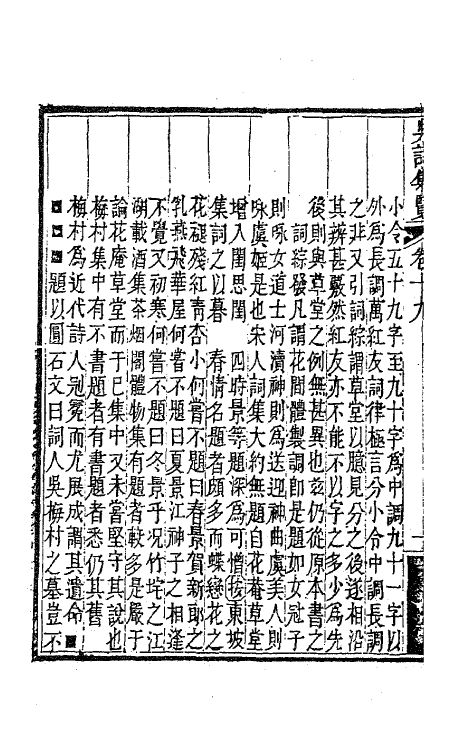 吳詩集覽 卷十九 一
小令五十九字至九十字爲中調九十一字以
外爲長調萬紅友詞律極言分小令中調長調
之非又引詞綜謂草堂以臆見分之後遂相沿
其辨甚覈然紅友亦不能不以字之多少爲先
後則與草堂之例無甚異也玆仍從原本書之
詞綜發凡謂花間體製調卽是題如女冠子
則咏女道士河瀆神則爲送迎神曲虞美人則
咏虞姬是也宋人詞集大約無題自花菴草堂
增入閨思閨情四時景等題深爲可憎按東坡
集詞之以暮春情名題者頗多而蝶戀花之
花褪殘紅靑杏小何嘗不題曰春景賀新郎之
乳燕飛華屋何嘗不題曰夏景江神子之相逢
不覺又初寒何嘗不題曰冬景乎况竹垞之江
湖載酒集茶烟閣體物集有題者較多是嚴于
論花庵草堂而于己集中又未嘗堅守其說也
梅村集中有不書題者有書題者悉仍其舊
梅村爲近代詩人冠冕而尤展成謂其遺命
題以圓石文曰詞人吳梅村之墓豈不